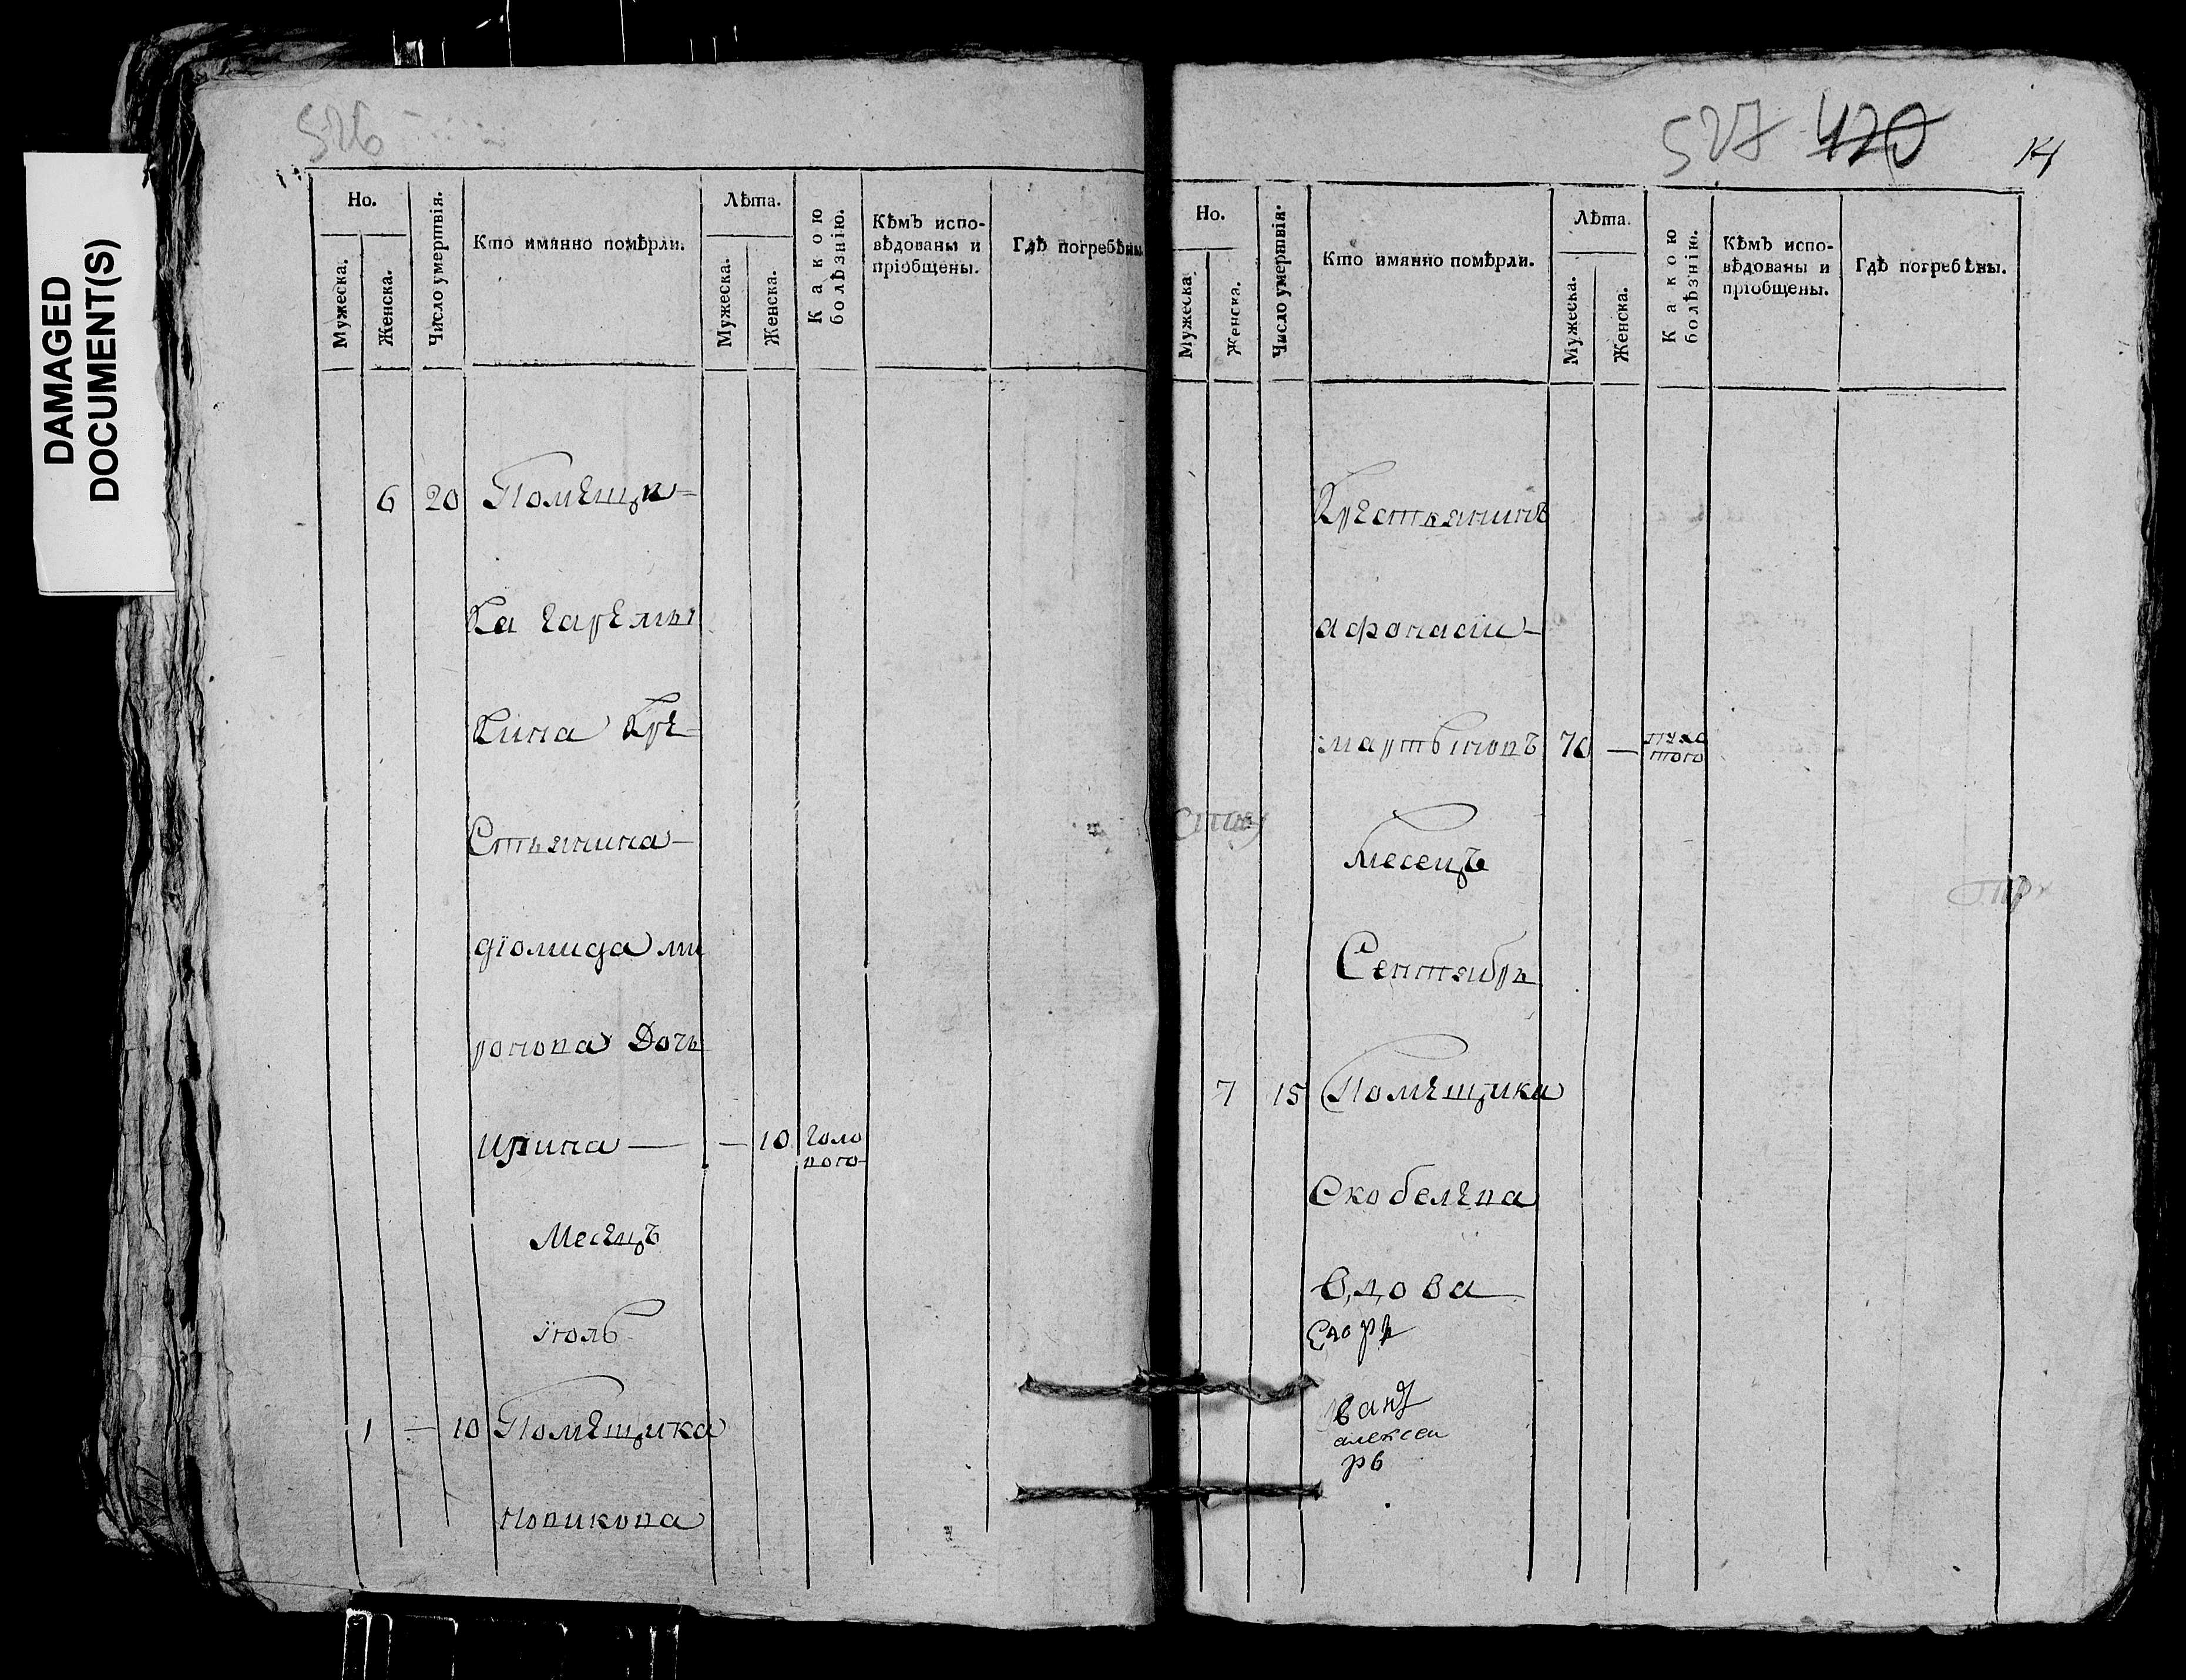 DAMAGED
DOCUMENT(S)
526
Но.
Мужеска.
Женска.
Число умертвія.
Кто имянно помѣрли.
Лѣта.
Мужеска.
Женска.
Какою
болѣзнію.
Кѣмъ испо-
вѣдованы и
пріобщены.
Гдѣ погребѣны.
6 20 Помещи-
ка
кина кре-
стьянина
діомида ми
ронова дочь
ирина — — 10 голо
вого
Месецъ
іюль
1 — 10 Помещика
Новикова
527 420
14
Но.
Мужеска.
Женска.
Число умертвія.
Кто имянно помѣрли.
Лѣта.
Мужеска.
Женска.
Какою
болѣзнію.
Кѣмъ испо-
вѣдованы и
пріобщены.
Гдѣ погребѣны.
крестьянинъ
афонасіи
мартыновъ 70 —
того
месецъ
Сентябрь
7 15 Помещика
Скобелева
вдова
алексеи